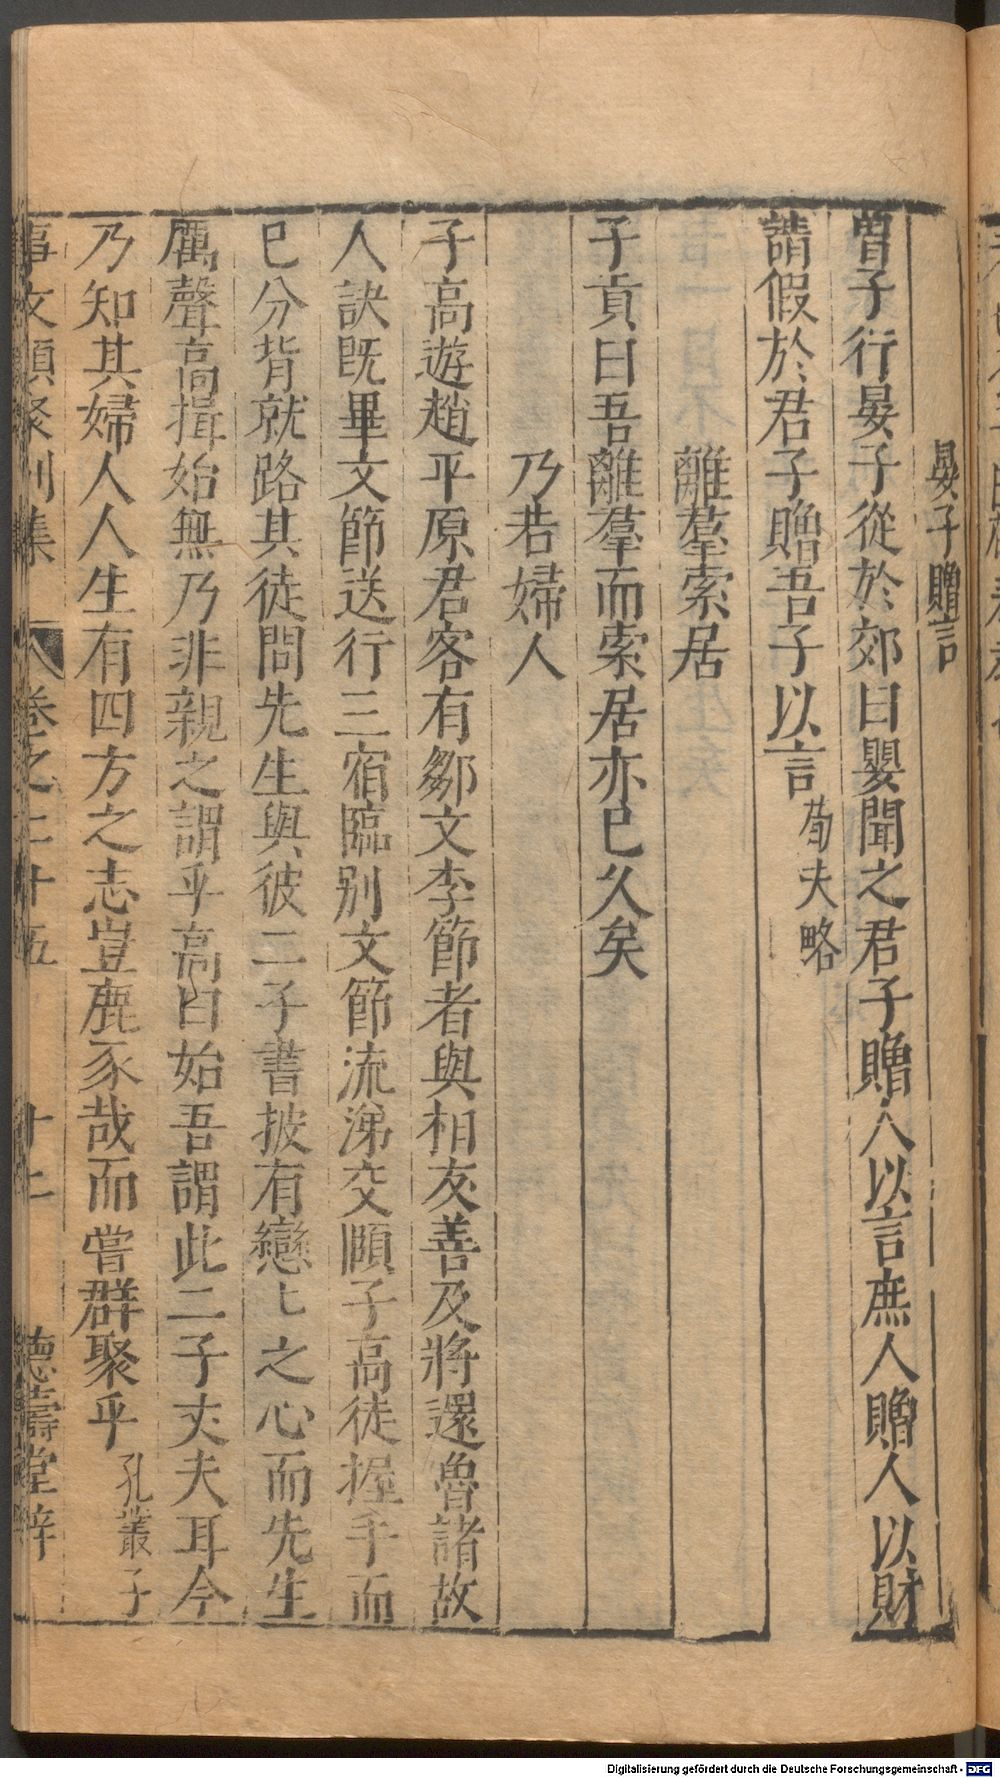 晏子贈言
曾子行晏子從於郊曰嬰聞之君子贈人以言庶人贈人以財
請假於君子贈吾子以言荀夫略
離羣索居
子貢曰吾離羣而索居亦已久矣
乃若婦人
子高遊趙平原君客有鄒文李節者與相友善及將還魯諸故
人訣既畢文節送行三宿臨別文節流涕交頤子高徒握手而
已分背就路其徒問先生與彼二子書披有戀〻之心而先生
厲聲高揖始無乃非親之謂乎高曰始吾謂此二子丈夫耳今
乃知其婦人人生有四方之志豈鹿豕哉而嘗群聚乎孔叢子
事文類聚別集 卷之二十五 十二 德壽堂梓
Digitalisierung gefördert durch die Deutsche Forschungsgemeinschaft - DFG